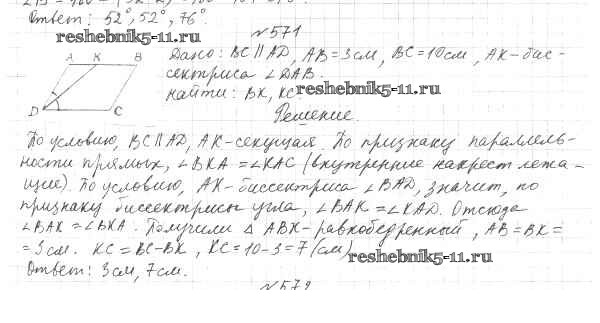 Ответ: 52°, 52°, 76°.
№571
reshebnik5-11.ru
Дано: BC∥AD, AB=3см, BC=10см, AK-бис-
сектриса ∠DAB.
найти: BK, KC.
reshebnik5-11.ru
A K B
D C
Решение.
По условию, BC∥AD, AK-секущая. По признаку параллель-
ности прямых, ∠BKA=∠KAC (внутренние накрест лежа-
щие). По условию, AK-биссектриса ∠BAD, значит, по
признаку биссектрисы угла, ∠BAK=∠KAD. Отсюда
∠BAK=∠BKA. Получили △ ABK-равнобедренный, AB=BK=
=3см. KC=BC-BK, KC=10-3=7(см)
reshebnik5-11.ru
Ответ: 3см, 7см.